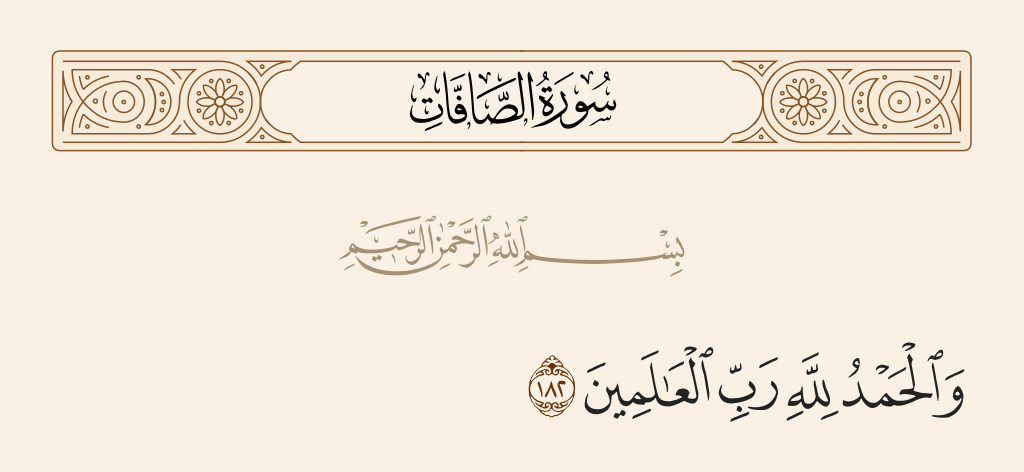 سُورَةُ الصَّافَّاتِ
بِسْمِ ٱللَّهِ ٱلرَّحْمَٰنِ ٱلرَّحِيمِ
وَٱلْحَمْدُ لِلَّهِ رَبِّ ٱلْعَٰلَمِينَ ١٨٢